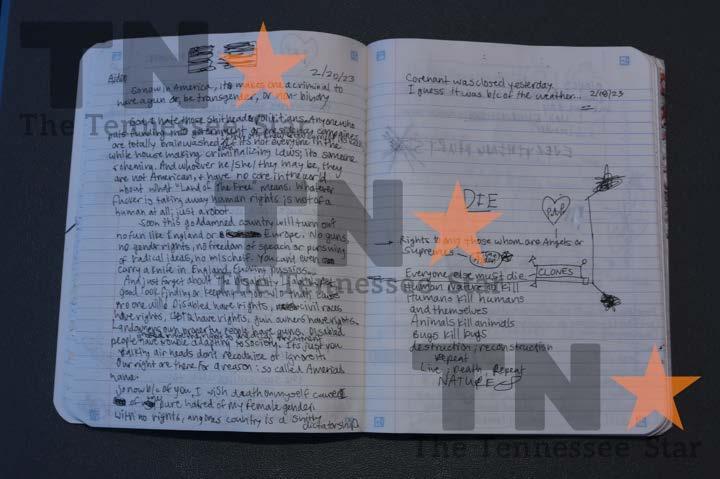 Aiden 2/20/23
So now in America, it makes one a criminal to
have a gun or be transgender, or non-binary
God I hate those shithead politicians. Anyone who
are totally brainwashed. If its not everyone in the
white house making criminalizing laws; its someone
scheming. And whoever he/she/they may be, they
are not American, & have no care in the world
about what "Land of the Free" means. Whatever
fucker is taking away human rights is not of a
human at all; just a robot.
Soon this goddamned country will turn out
no fun like England or Europe. No guns,
no gender rights, no freedom of speech or pursuing
of radical ideas, no mischief. You cant even
carry a knife in England
And just forget about
good luck finding or keeping a job
no one will. Disabled have rights, civil races
have rights, LGBTQ have rights, gun owners have rights.
Landowners own property, people have guns, Disabled
people have trouble adapting to society. Its just you
talking air heads don't recognise or ignore it.
Our rights are there for a reason: so called Americas
name.
So now b/c of you, I wish death on myself cause
of pure hatred of my female gender
with no rights, any ones country is a shitty
dictatorship
Covenant was closed yesterday.
I guess it was b/c of the weather.. 2/18/23
DIE
→ Rights to any those whom are Angels or
Supremes
Everyone else must die CLONES
Human Nature to kill
Humans kill humans
and themselves
Animals kill animals
Bugs kill bugs
destruction, reconstruction
repeat
Live, Death, Repeat
NATURE
TN
The Tennessee Star
TN
TN
The Tennessee Star